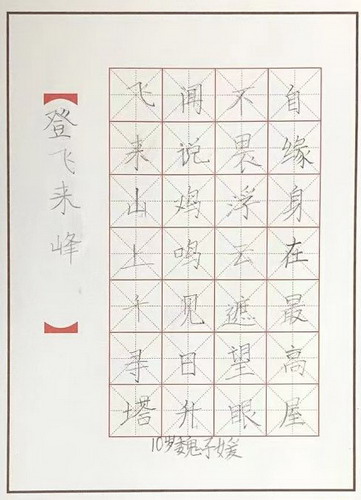 登飞来峰
飞来山上千寻塔
闻说鸡鸣见日升
不畏浮云遮望眼
自缘身在最高屋
10岁魏子媛